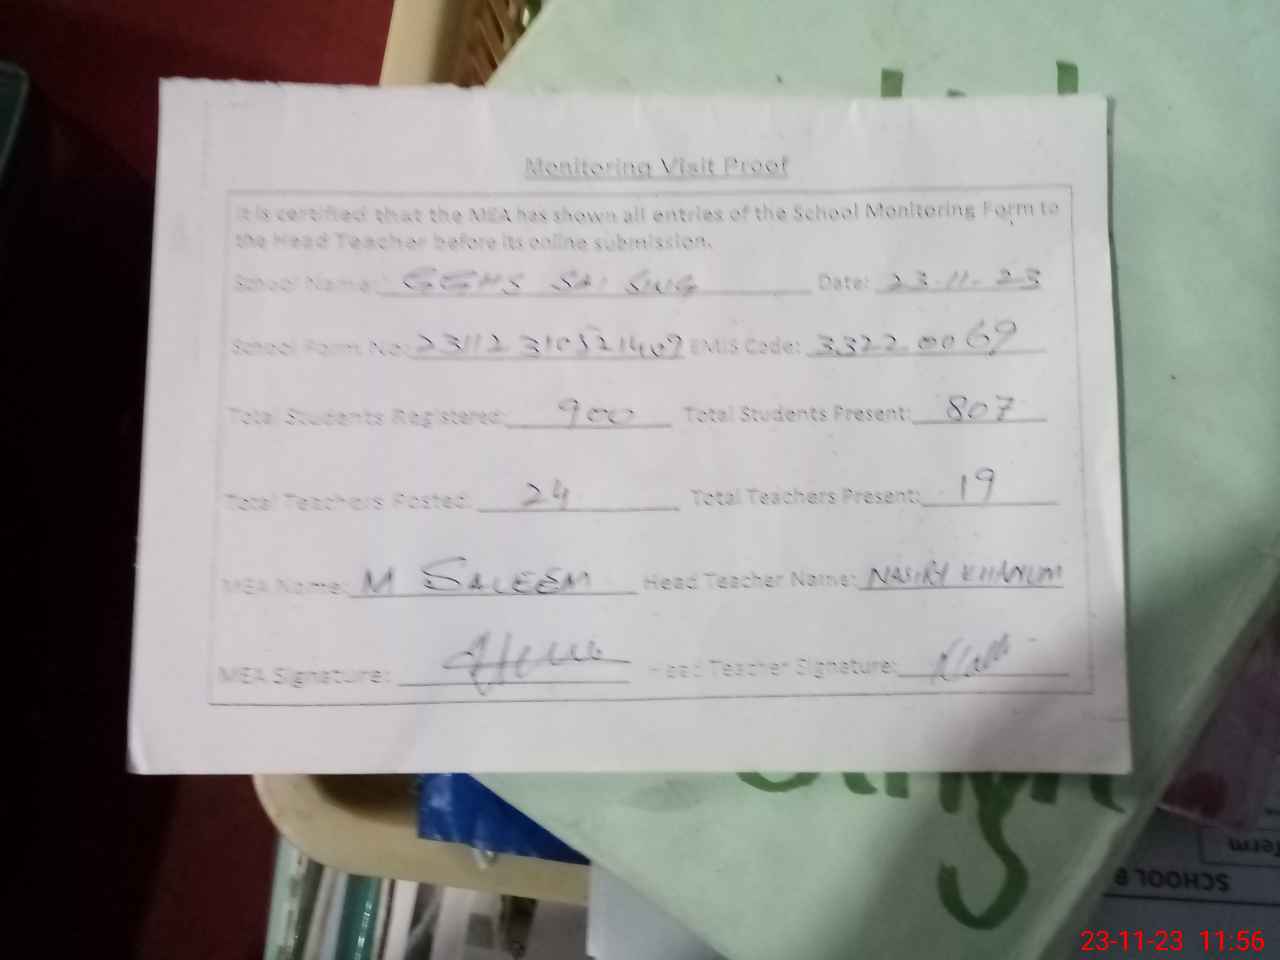 Monitoring Visit Proof
It is certified that the MEA has shown all entries of the School Monitoring Form to
the Head Teacher before its online submission.
School Name: GGHS SAI SING Date: 23-11-23
School Form No: 23112310521409 EMIS Code: 33220069
Total Students Registered: 900 Total Students Present: 807
Total Teachers Posted: 24 Total Teachers Present: 19
MEA Name: M SALEEM Head Teacher Name: KHANUM
MEA Signature: Head Teacher Signature:
Term
SCHOOL B
23-11-23 11:56